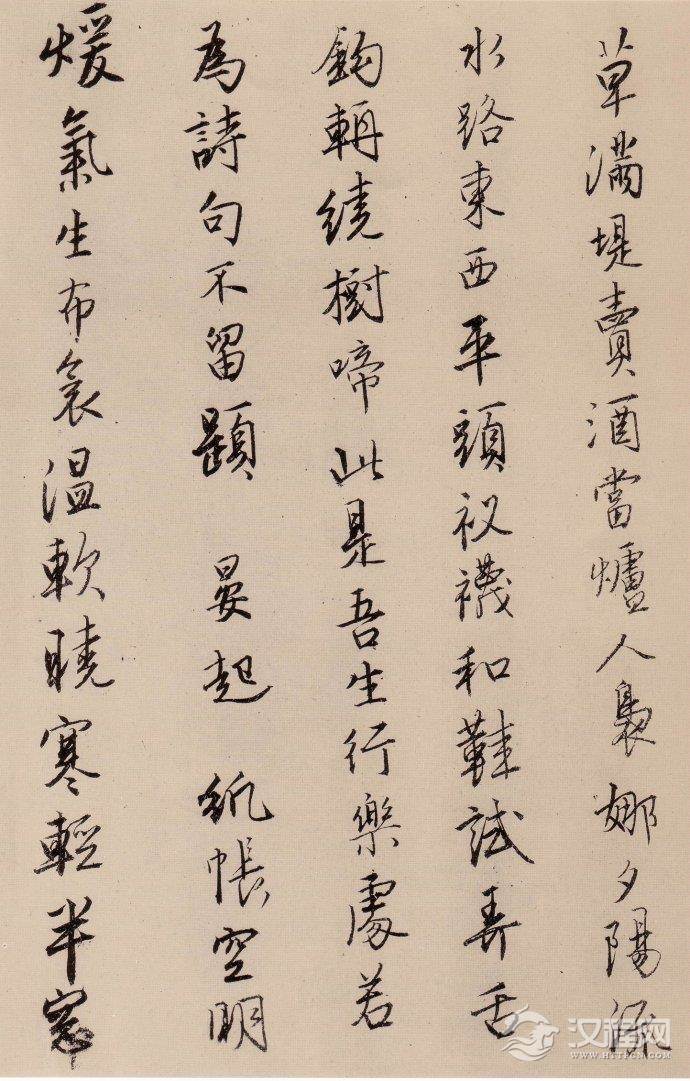 草滿堤賣酒當爐人裊娜夕陽流
水路東西平頭衩襪和鞋試弄舌
鉤輈繞樹啼此是吾生行樂處若
為詩句不留題 晏起 紙帳空明
煖氣生布衾温軟曉寒輕半窓
汉程网
WWW.HTTPCN.COM